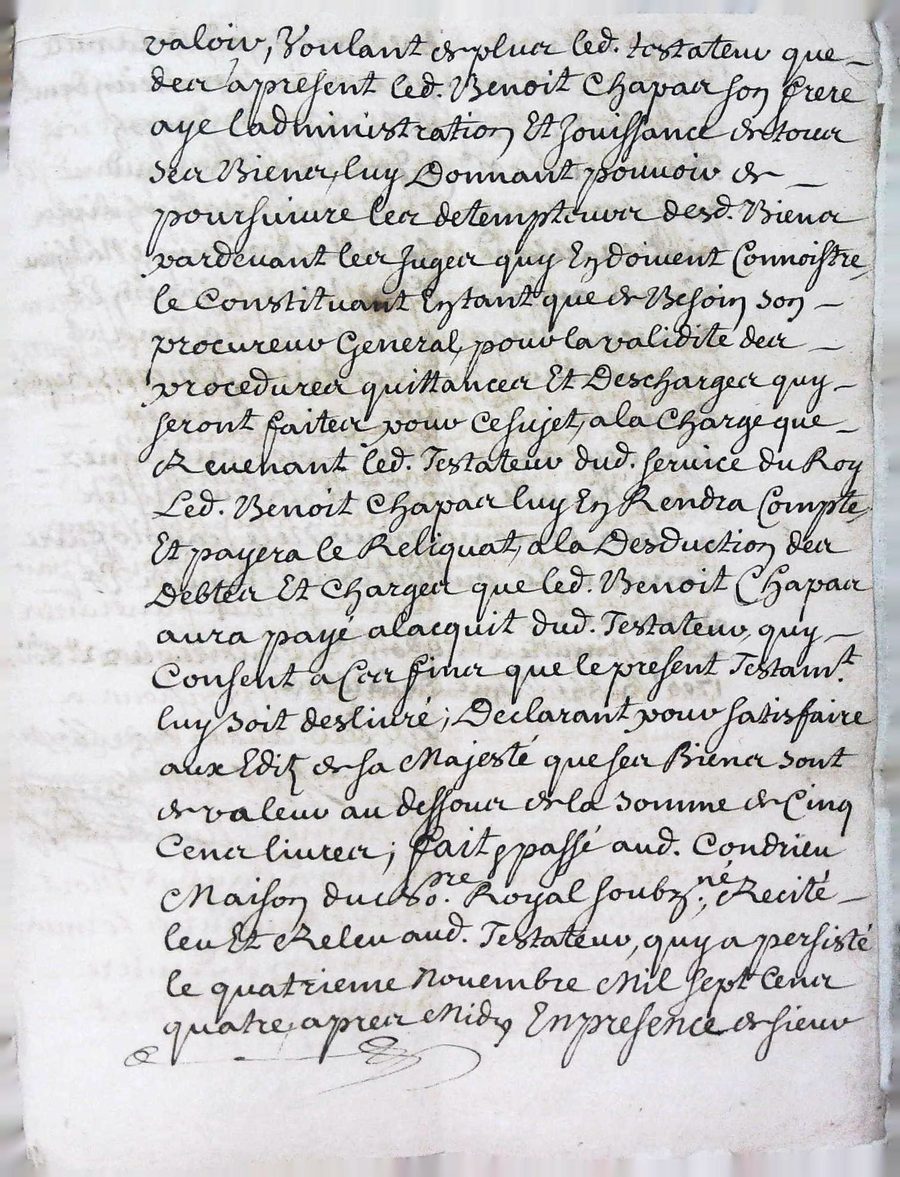 valoir, Voulant de plus led. testateur que
des apresent led. Benoit Chapas son frere
aye ladministration Et Jouissance de tous
ses Biens, luy Donnant pouvoir de
poursuivre les detempteurs desd. Biens
pardevant les Juges quy En doivent Connoistre,
le Constituant En tant que de Besoin son
procureur General, pour la validite des
procedures quittances Et Descharges quy
seront faites pour Ce sujet, a la Charge que
Revenant led. Testateur dud. service du Roy
Led. Benoit Chapas luy En Rendra Compte,
Et payera le Reliquat, a la Desduction des
Debtes Et Charges que led. Benoit Chapas
aura payé alacquit dud. Testateur, quy
Consent a Ces fins que le present Testamt.
luy soit deslivré; Declarant pour satisfaire
aux Edits de sa Majesté que ses Biens sont
de valeur au dessous de la somme de Cinq
Cens livres; fait & passé aud. Condrieu
Maison du No.re Royal soubz.né, Recité
leu Et Releu aud. Testateur, quy a persisté
le quatrieme Novembre Mil sept Cens
quatre, apres Midy En presence de sieur